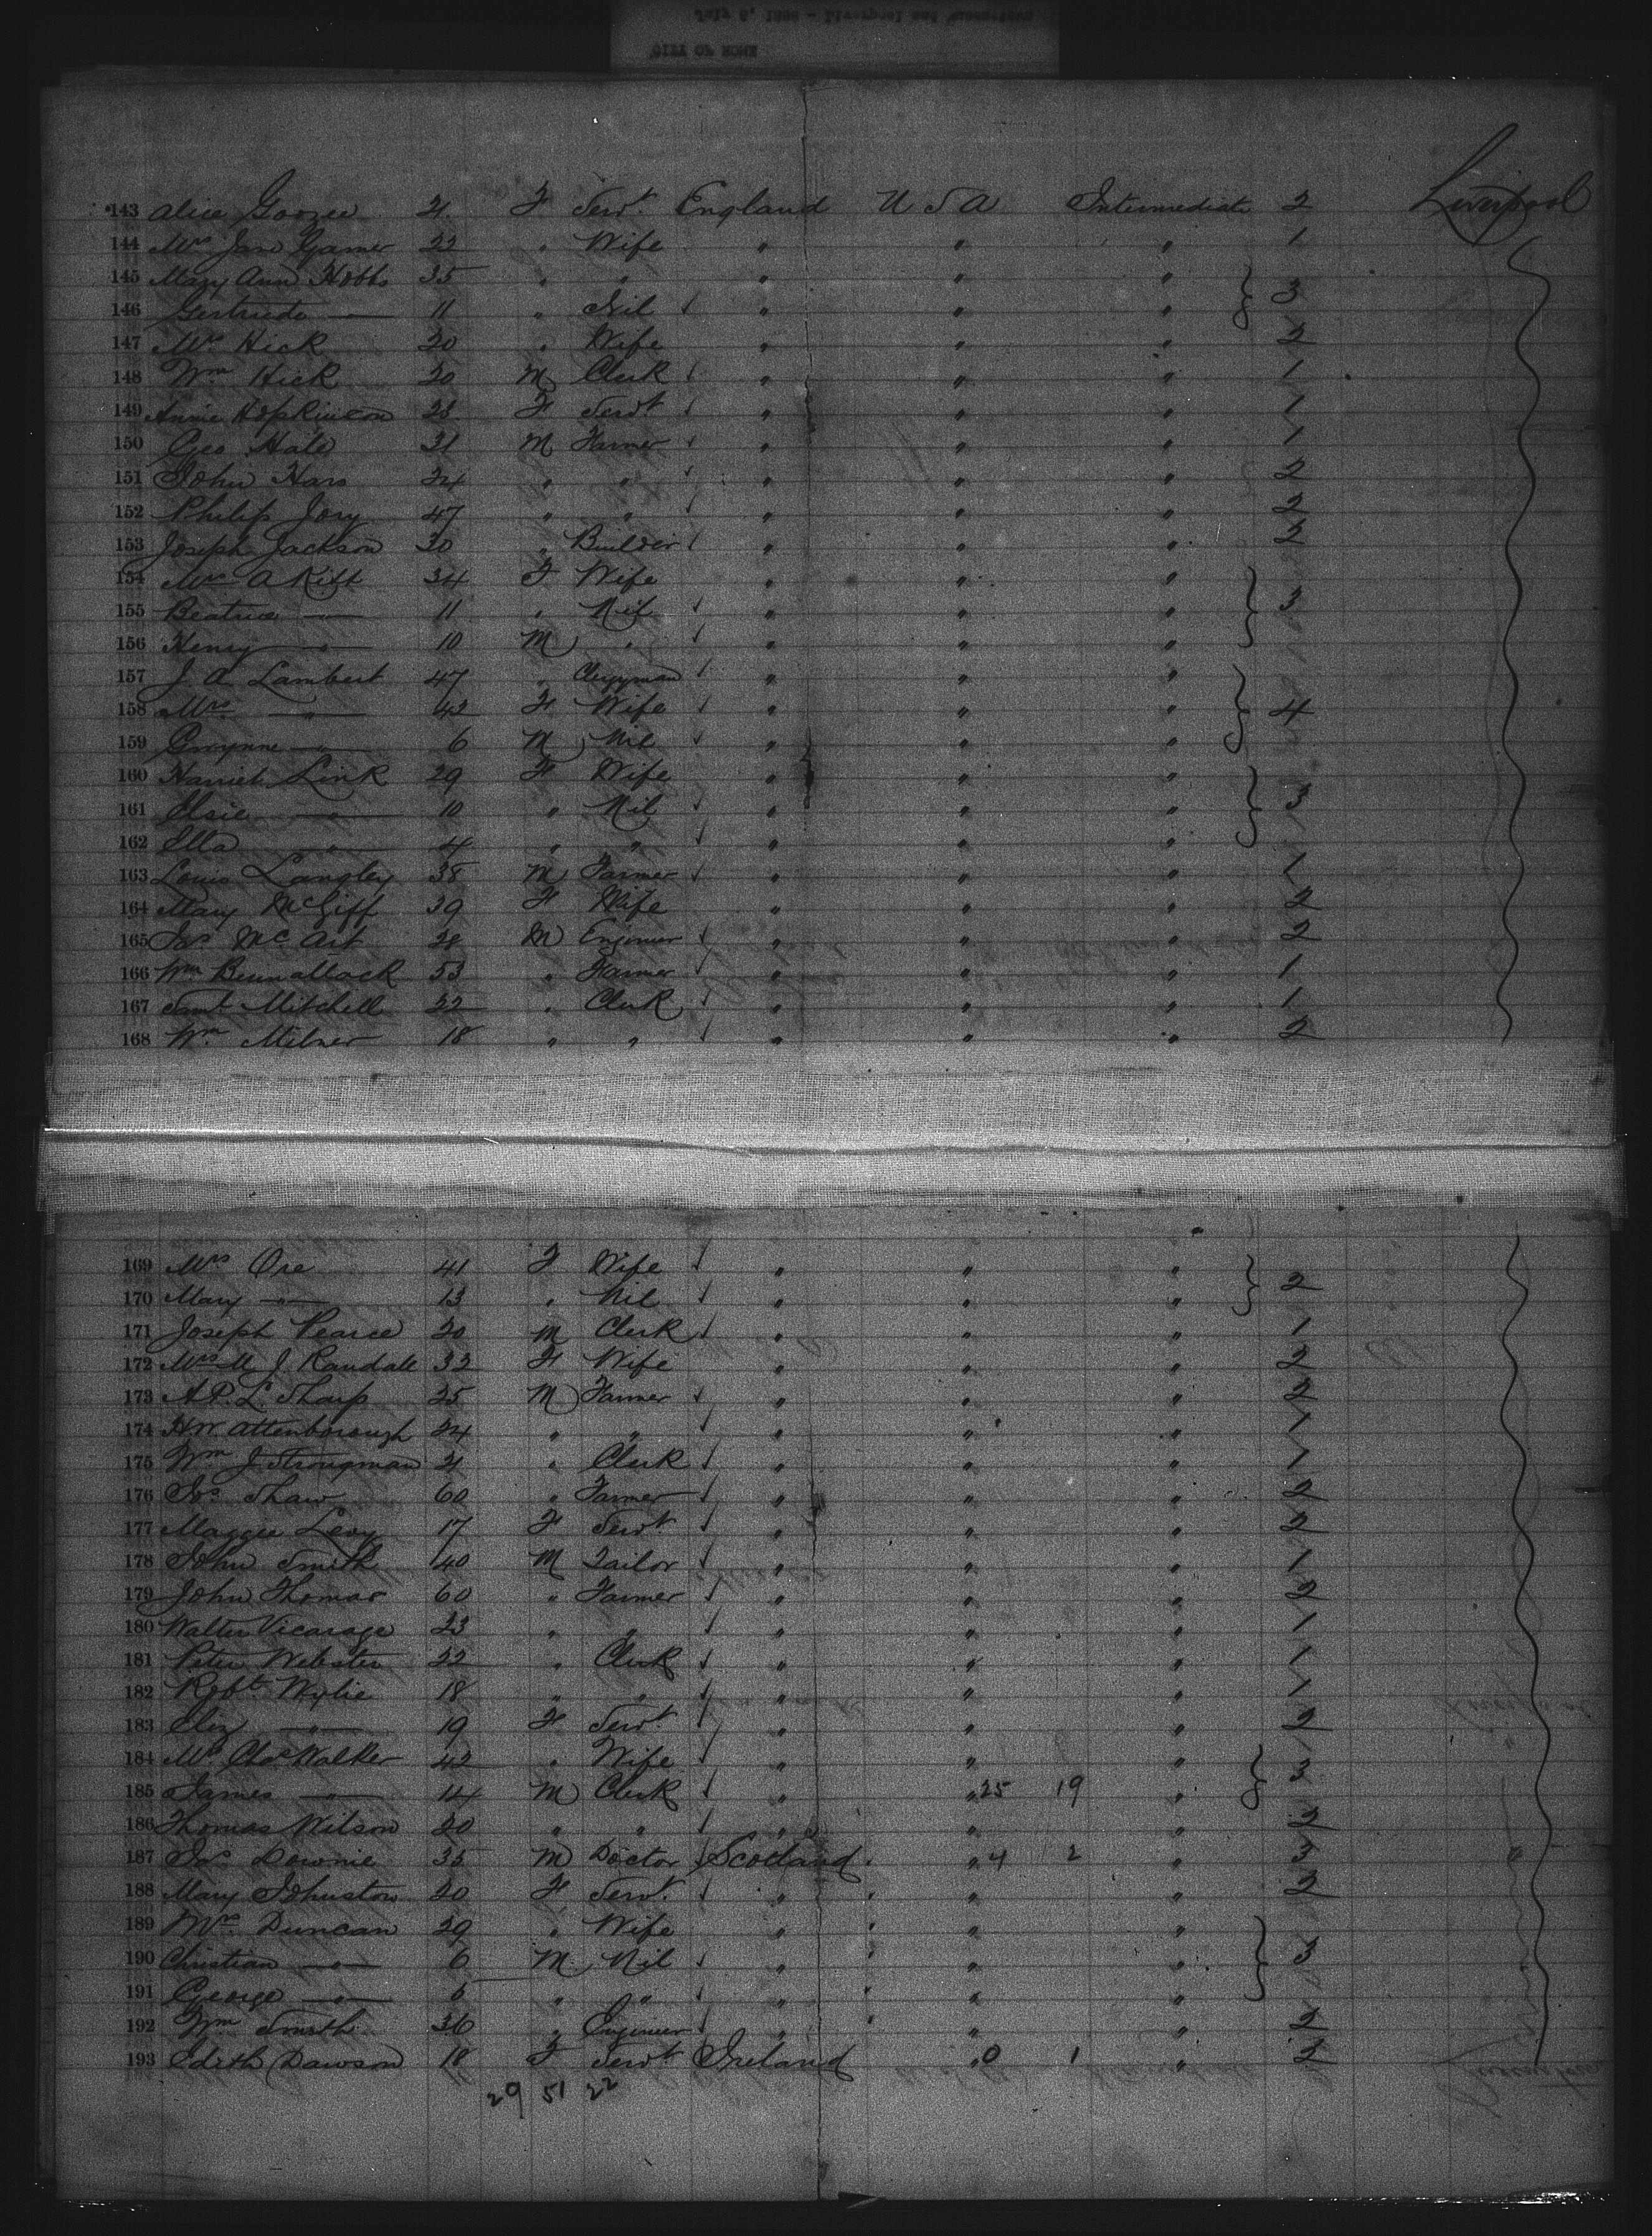 CITY OF ROME
143 Alice Goozee 21 F Servt. England U S A Intermediate 2 Liverpool
144 Mrs Jane Garner 22 " Wife " " " 1
145 Mary Ann Hobbs 35 " " " " "
146 Gertrude — 11 " Nil " " " 3
147 Mrs Hick 20 " Wife " " " 2
148 Wm Hick 20 M Clerk " " " 1
149 Annie Hopkinson 23 F Servt " " " 1
150 Geo Hale 31 M Farmer " " " 1
151 John Hars 24 " " " " " 2
152 Philip Jory 47 " " " " " 2
153 Joseph Jackson 30 " Builder " " " 2
154 Mrs A Kitt 34 F Wife " " "
155 Beatrice — 11 " Nil " " " 3
156 Henry —"— 10 M " " " "
157 J. A Lambert 47 " Clergyman " " "
158 Mrs —"— 42 F Wife " " " 4
159 Gwynne —"— 6 M Nil " " "
160 Harriet Link 29 F Wife " " "
161 Elsie —"— 10 " Nil " " " 3
162 Ella —"— 4 " " " " "
163 Louis Langley 38 M Farmer " " " 1
164 Mary McGiff 39 F Wife " " " 2
165 Jos McArt 28 M Engineer " " " 2
166 Wm Bennallack 53 " Farmer " " " 1
167 Saml Mitchell 22 " Clerk " " " 1
168 Wm Milner 18 " " " " " 2
169 Mrs Ore 41 F Wife " " "
170 Mary —"— 13 " Nil " " " 2
171 Joseph Pearce 20 M Clerk " " " 1
172 Mrs M J. Randall 32 F Wife " " " 2
173 A.P.L. Sharp 25 M Farmer " " " 2
174 H.W. Attenborough 24 " " " " " 1
175 Wm J. Strongman 21 " Clerk " " " 1
176 Jos Shaw 60 " Farmer " " " 2
177 Maggie Levy 17 F Servt " " " 2
178 John Smith 40 M Tailor " " " 1
179 John Thomas 60 " Farmer " " " 2
180 Walter Vicarage 23 " " " " " 1
181 Peter Webster 22 " Clerk " " " 1
182 Robt. Wylie 18 " " " " " 1
183 Eliz —"— 19 F Servt. " " " 2
184 Mrs Chas Walker 42 " Wife " " "
185 James —"— 14 M Clerk " " 25 19 " 3
186 Thomas Wilson 20 " " " " " 2
187 Jos Downie 35 M Doctor Scotland " 4 2 " 3 "
188 Mary Johnston 20 F Servt. " " " 2
189 Mrs Duncan 29 " Wife " " "
190 Christian —"— 6 M Nil " " " 3
191 George —"— 5 " " " " "
192 Wm Smith 36 " Engineer " " " 2
193 Edith Dawson 18 F Servt Ireland " 0 1 " 2
29 51 22